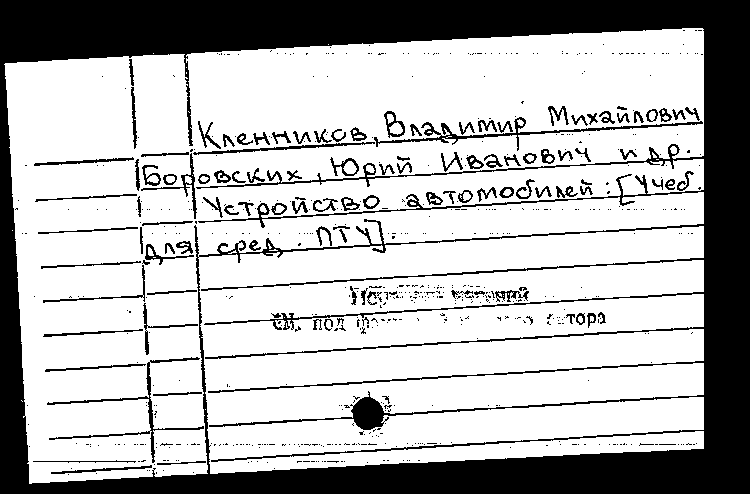 Кленников, Владимир Михайлович
Боровских, Юрий Иванович и др.
Устройство автомобилей: [Учеб.
для сред. ПТУ].
см. под автора